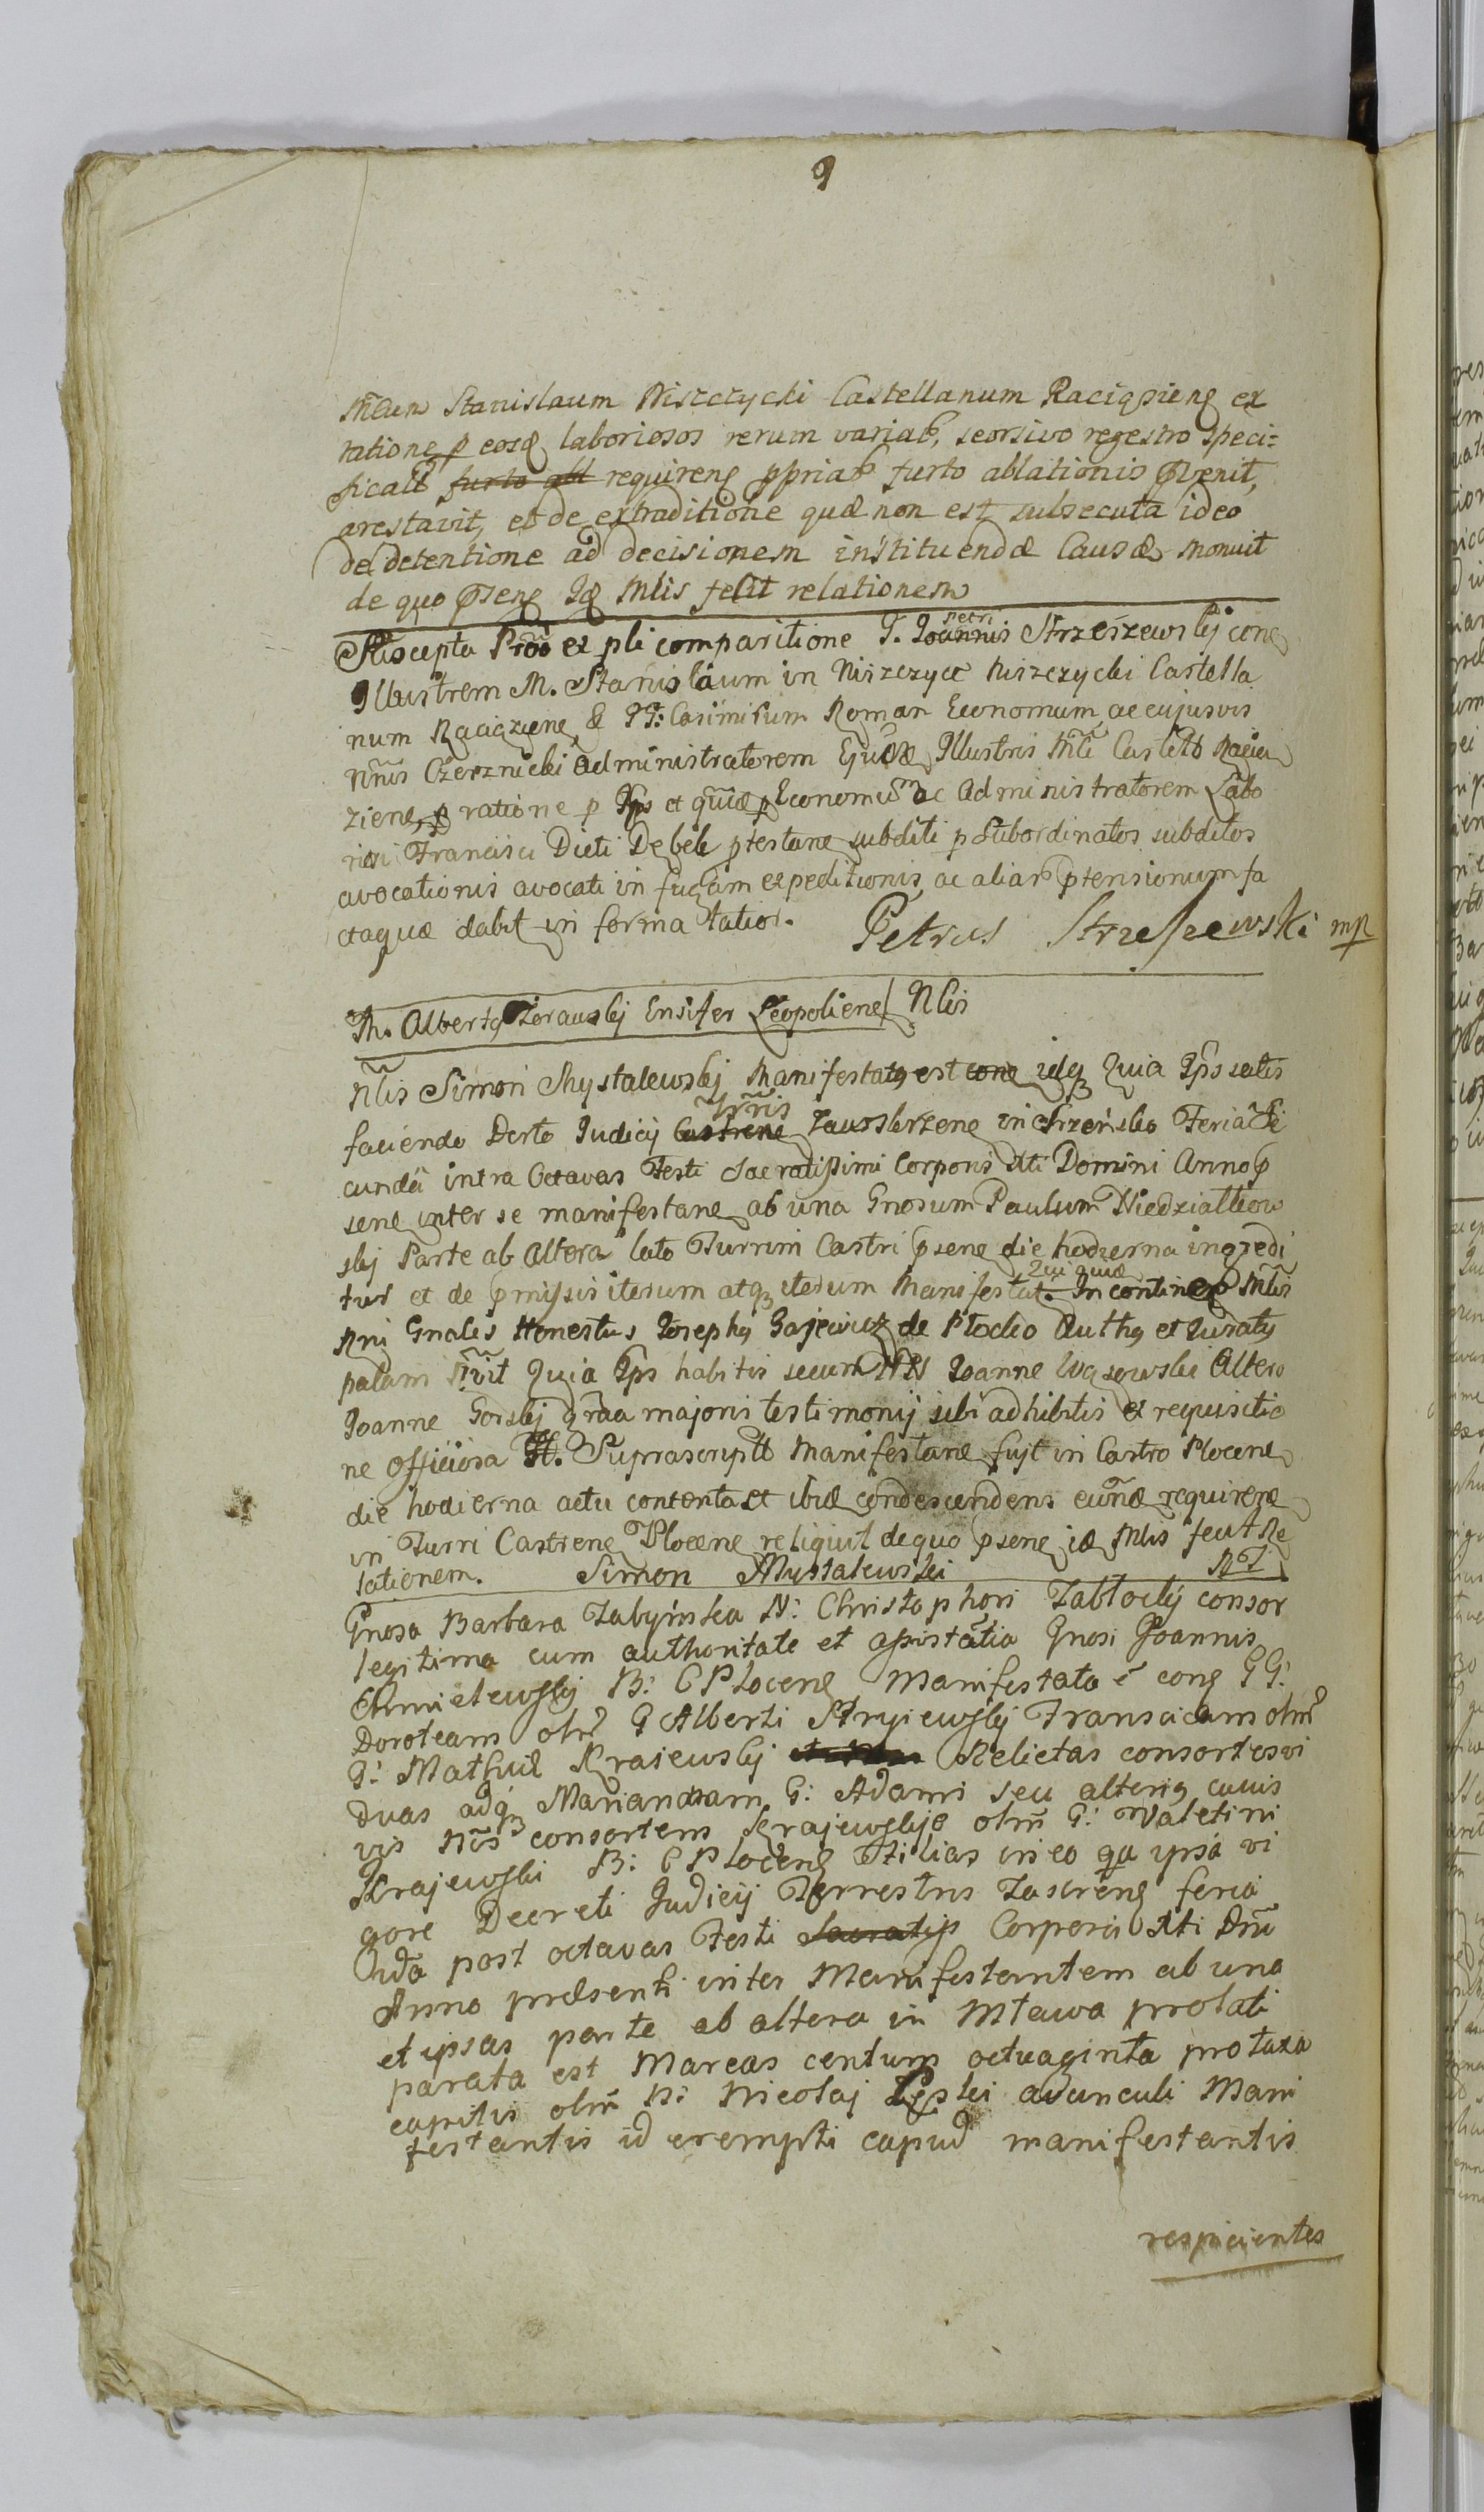 9
Mcum Stanislaum Niszczycki Castellanum Raciąsiens ex
ratione p eosd laboriosos rerum variar, seorsivo regestro speci=
ficat furto abl requirens ppriar furto ablationis pvenit,
arestavit, et de extraditione quæ non est subsecuta ideo
de detentione ad decisionem instituendæ Causæ monuit
de quo psens Id Mlis fecit relationem
Suscepta Prõo ex pli comparitione G. Joannis Petri Strzeszewskj cons
Illustrem M. Stanislaum in Niszczyce Niszczycki Castella
num Raciąziens & GG: Casimirum Roman Economum ac cujusvis
Nnis Czerznicki Administratorem Ejusdæ Illustris Mci Castel Racią
ziens, p ratione p Ips et Economum ac Administratorem Labo
riosi Francisci Dicti Debek ptestans subditi p subordinatos subditos
avocationis avocati in fugam expeditionis ac aliar ptensionum fa
ctaquæ dabit in forma latior.
Petrus Strzeszewski mp
M. Albertq Zorauskj Ensifer Leopoliens Nlis
Nlis Simon Mystalewskj Manifestatq est cons idq Quia Ips satis
faciendo Dcrto Judicij Castrens Trris Zawskrzens in Szrensko Feria Se
cunda intra Octavas Festi Sacratissimi Corporis Xti Domini Anno p
sens inter se manifestans ab una Gnosum Paulum Niedziałkow
skj Parte ab Altera lato Turrim Castri psens die hodierna ingredi
tur et de pmissis iterum atq iterum Manifestat. Qui quidæ In continer Mlis
Rni Gnalis Honestus Josephq Gajewicz de Plocko Authq et Juratq
palam Quia Ips habitis secum NN Joanne Wąsowski Altero
Joanne Gorskj graa majoris testimonij sibi adhibitis et requisitio
ne officiosa M. Suprascripti Manifestans fuit in Castro Plocens
die hodierna actu contenta et ibid condescendens eundæ requirens
in Turri Castrens Plocens reliquit de quo psens id Mlis fecit Re
lationem. Simon Mystalewski
Gnosa Barbara Zabyńska N: Christophori Zabłockj consor
legitima cum authoritate et assistãtia Gnosi Joannis
Chmielewskj B: C Plocens Manifestata ẽ cons GG:
Doroteam olim G Alberti Stryjewskj Franciscam olim
G: Krajewskj Relictas consortes vi
duas adq Mariannam G: Adami seu alteriq cuius
vis Nõis consortem Krajewskje olim G: Valetini
Krajewski B: C Plocens Filias in eo qa ipsa vi
gore Decreti Judicij Terrestris Zascrens feria
post octavas Festi Sacratiss Corporis Xti Dni
Anno præsenti inter Manifestantem ab una
et ipsas parte ab altera in Mlawa prolati
parata est Marcas centum octuaginta pro taxa
capitis olim N: Nicolaj Lęski avunculi Mani
festantis id erempti capud manifestantis
respicientes